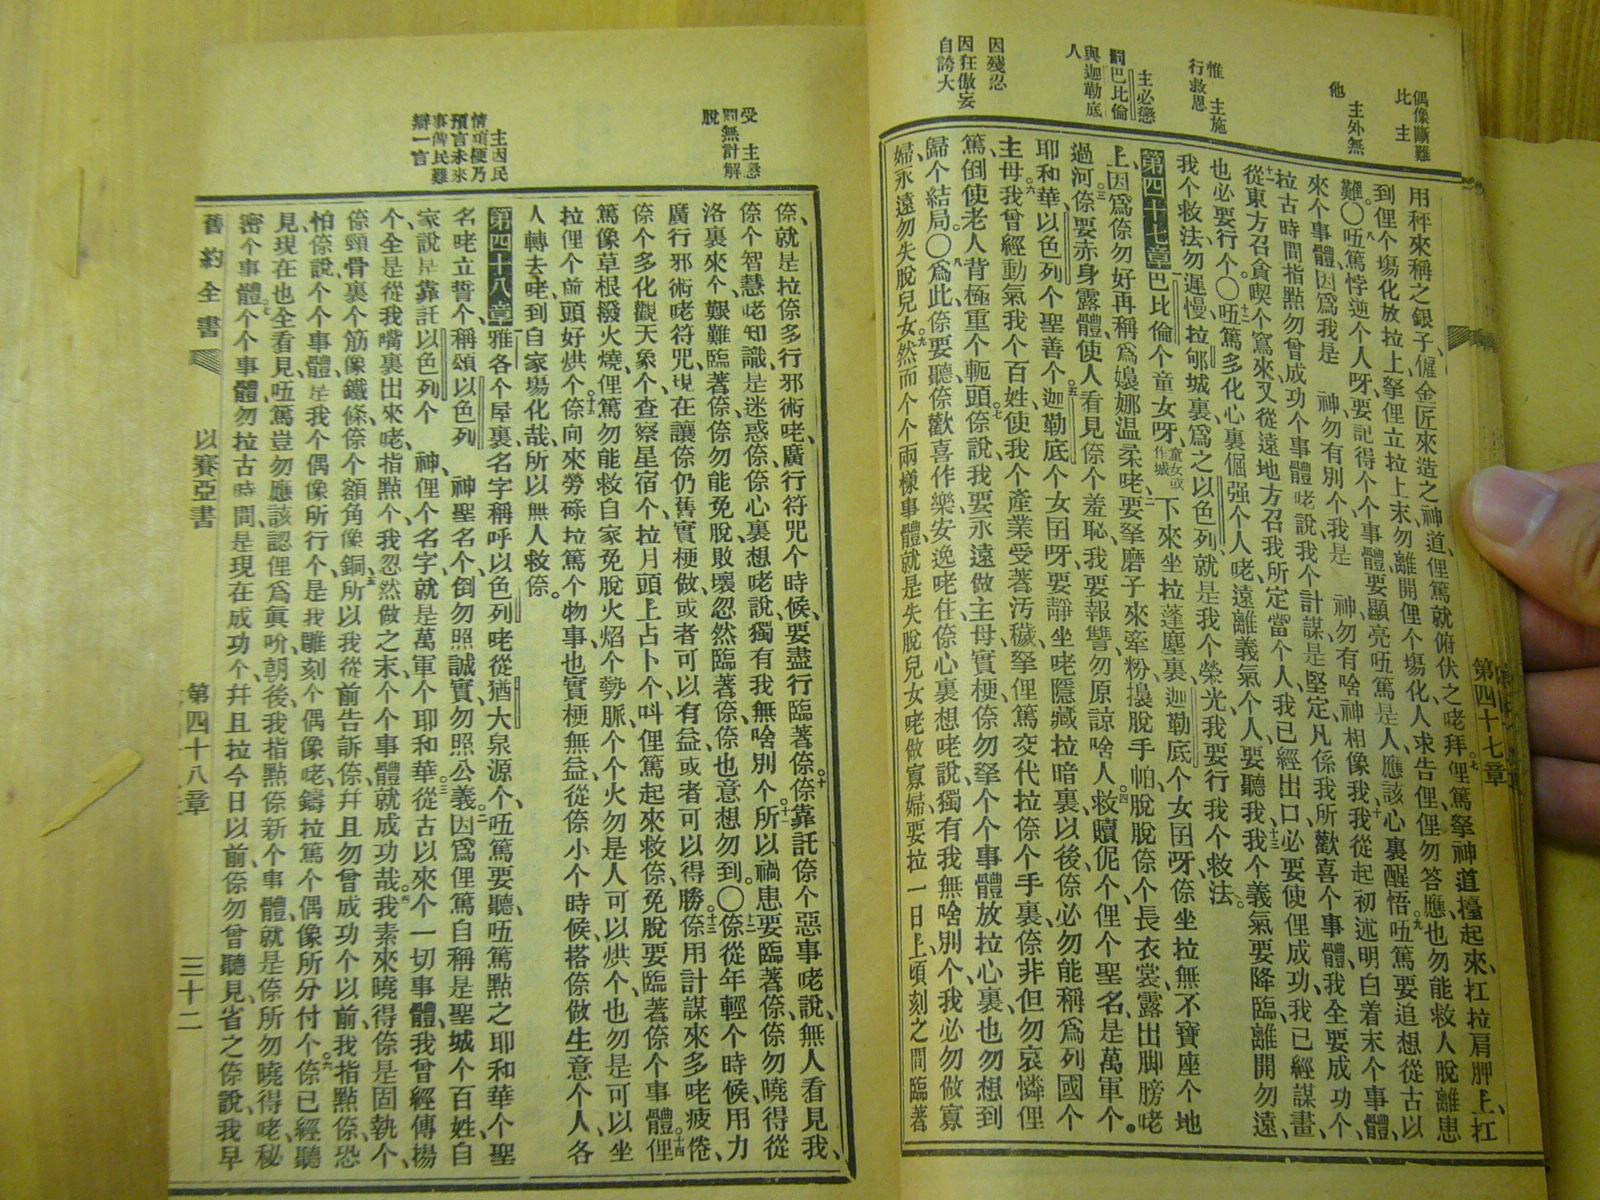 偶像斷難
比　主
主外無
他
惟　主施
行救恩
主必懲
罰巴比倫
與迦勒底
人
因殘忍
因狂傲妄
自誇大
第四十七章
用秤來稱之銀子、僱金匠來造之神道、俚篤就俯伏之咾拜。七俚篤拏神道擡起來、扛拉肩胛上、扛
到俚个塲化放拉上、拏俚立拉上、末勿離開俚个塲化、人求告俚、俚勿答應、也勿能救人脫離患
難。〇八㕶篤悖逆个人呀、要記得个个事體、要顯亮㕶篤是人、應該心裏醒悟。九㕶篤要追想從古以
來个事體、因爲我是　神、勿有別个、我是　神、勿有啥神相像我。十我從起初述明白着末个事體、
拉古時間指點勿曾成功个事體咾說、我个計謀是堅定、凡係我所歡喜个事體、我全要成功个、
十一從東方召貪喫个鷙來、又從遠地方召我所定當个人、我已經出口、必要使俚成功、我已經謀畫、
也必要行个。〇十二㕶篤多化心裏倔强个人咾、遠離義氣个人、要聽我、十三我个義氣要降臨、離開勿遠、
我个救法、勿遲慢、拉郇城裏爲之以色列、就是我个榮光、我要行我个救法。
第四十七章巴比倫个童女呀、童女或作城下來坐拉蓬塵裏、迦勒底个女囝呀、倷坐拉無不寶座个地
上、因爲倷勿好再稱爲嬝娜溫柔咾、二要拏磨子來牽粉、攓脫手帕、脫脫倷个長衣裳、露出脚膀咾
過河。三倷要赤身露體、使人看見倷个羞恥、我要報讐、勿原諒啥人。四救贖伲个、俚个聖名、是萬軍个
耶和華、以色列个聖善个。五迦勒底个女囝呀、要靜坐咾隱藏拉暗裏、以後倷必勿能稱爲列國个
主母。六我曾經動氣我个百姓、使我个產業受著汚穢、拏俚篤交代拉倷个手裏、倷非但勿哀憐俚
篤、倒使老人背極重个軛頭。七倷說、我要永遠做主母、實梗倷勿拏个个事體放拉心裏、也勿想到
歸个結局。〇八爲此、倷要聽、倷歡喜作樂、安逸咾住、倷心裏想咾說、獨有我無啥別个、我必勿做寡
婦、永遠勿失脫兒女。九然而个个兩樣事體、就是失脫兒女咾做寡婦、要拉一日上、頃刻之間臨著
受　主懲
罰無計解
脫
主因民
情頑梗乃
預言未來
事俾民難
辯一言
倷、就是拉倷多行邪術咾、廣行符咒个時候、要盡行臨著倷。十倷靠託倷个惡事咾說、無人看見我、
倷个智慧咾知識、是迷惑倷、倷心裏想咾說、獨有我無啥別个。十一所以禍患要臨著倷、倷勿曉得從
洛裏來个、艱難臨著倷、倷勿能免脫、敗壞忽然臨著倷、倷也意想勿到。〇十二倷從年輕个時候、用力
廣行邪術咾符咒、現在讓倷仍舊實梗做、或者可以有益、或者可以得勝。十三倷用計謀來多咾疲倦、
倷个多化觀天象个、查察星宿个、拉月頭上占卜个、叫俚篤起來救倷、免脫要臨著倷个事體。十四俚
篤像草根撥火燒、俚篤勿能救自家免脫火焰个勢脈、个个火勿是人可以烘个、也勿是可以坐
拉俚个前頭好烘个。十五倷向來勞碌拉篤个物事、也實梗無益、從倷小个時候、搭倷做生意个人、各
人轉去咾、到自家塲化哉、所以無人救倷。
第四十八章雅各个屋裏、名字稱呼以色列咾從猶大泉源个、㕶篤要聽、㕶篤點之耶和華个聖
名咾立誓个、稱頌以色列　神聖名个、倒勿照誠實、勿照公義。二因爲俚篤自稱是聖城个百姓、自
家說是靠託以色列个　神、俚个名字、就是萬軍个耶和華。三從古以來个一切事體、我曾經傳揚
个、全是從我嘴裏出來咾指點个、我忽然做之末、个个事體就成功哉。四我素來曉得倷是固執个、
倷頸骨裏个筋像鐵條、倷个額角像銅。五所以我從前告訴倷、幷且勿曾成功个以前、我指點倷、恐
怕倷說、个个事體、是我个偶像所行个、是我雕刻个偶像咾、鑄拉篤个偶像所分付个。六倷已經聽
見、現在也全看見、㕶篤豈勿應該認俚爲眞吤、朝後、我指點倷新个事體、就是倷所勿曉得咾、秘
密个事體。七个个事體、勿拉古時間、是現在成功个、幷且拉今日以前、倷勿曾聽見、省之倷說、我早
舊約全書　以賽亞書　第四十八章　三十二